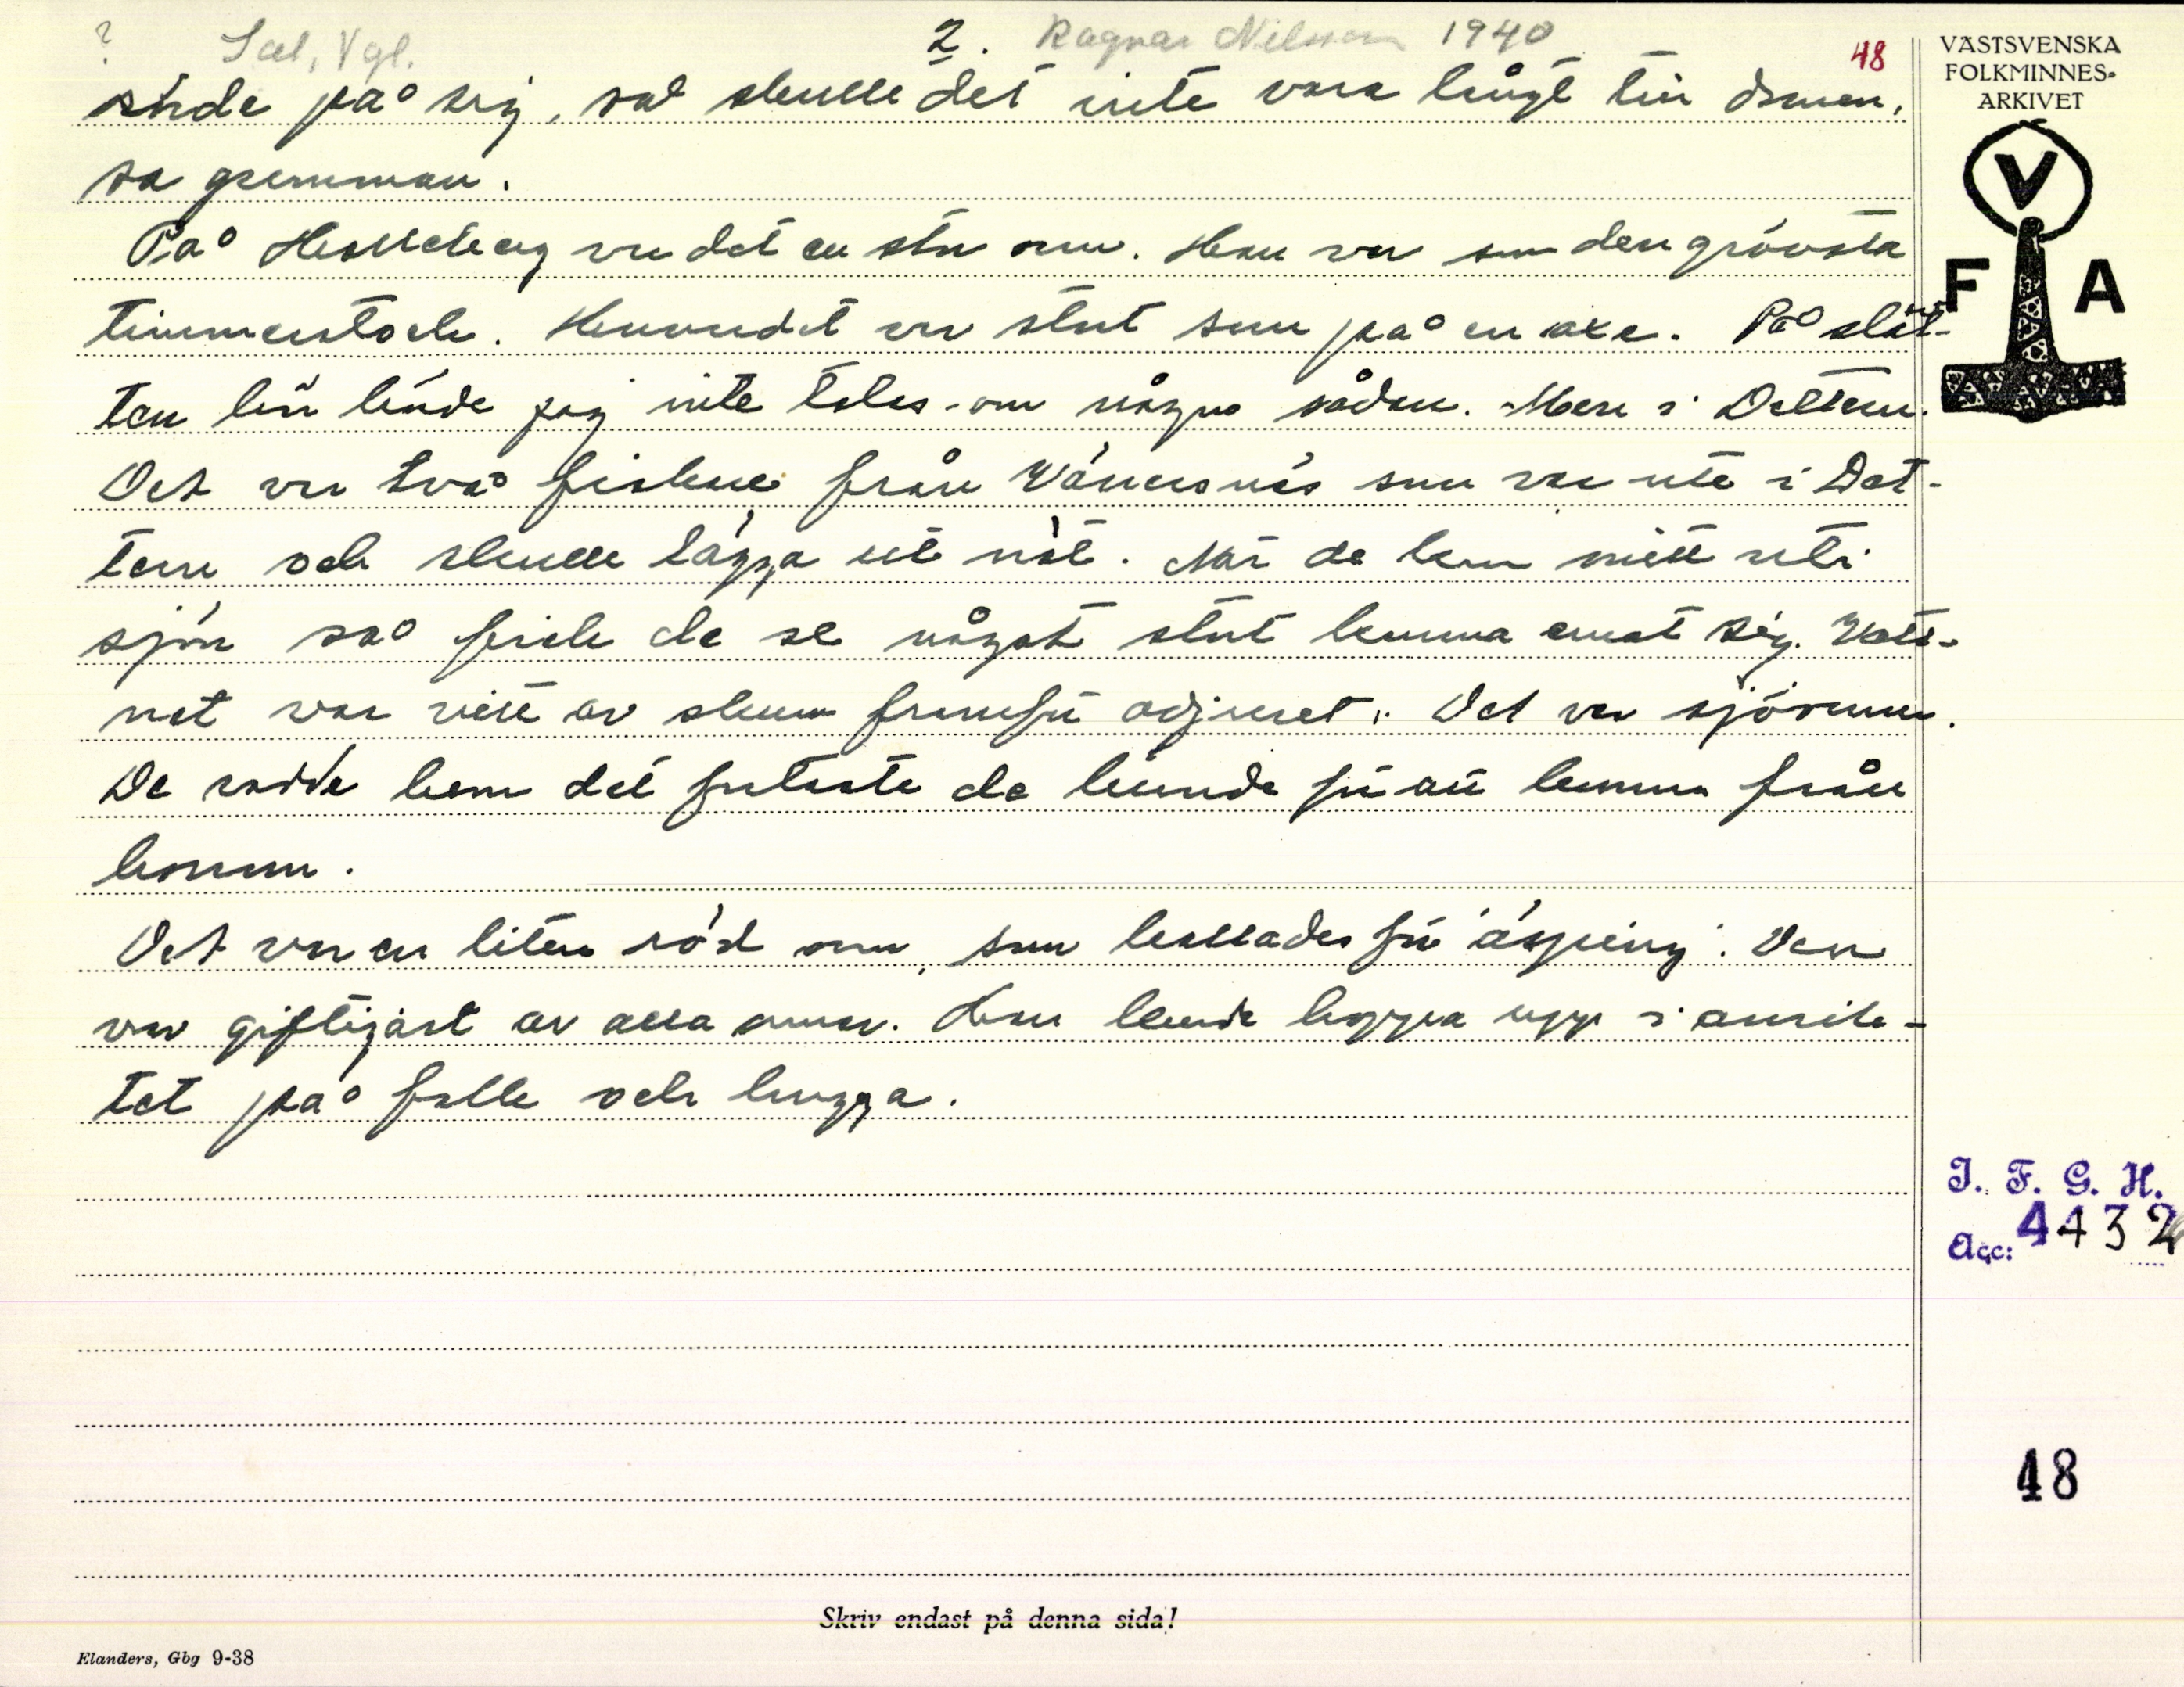 ? Sal, Vgl. 2. Ragnar Nilsson 1940 48
rörde på sig, så skulle det inte vara långt till ormen,
sa gumman.
På Halleberg var det en stor orm. Han var som den grövsta
timmerstock. Huvudet var stort som på en oxe. På slät-
ten här hörde jag inte talas om några sådan. Men i Dettern.
Det var två fiskare från Vänersnäs som var ute i Det-
tern och skulle lägga ut nät. När de kom mitt uti
sjön så fick de se något stort komma emot sig. Vatt-
net var vitt av skum framför odjuret. Det var sjöormen.
De rodde hem det fortaste de kunde för att komma från
honom.
Det var en liten röd orm, som kallades för 'äsping'. Den
var giftigast av alla ormar. Han kunde hoppa upp i ansik-
tet på folk och hugga.
VÄSTSVENSKA
FOLKMINNES-
ARKIVET
V
F A
I. F. G. H.
Acc: 4432
48
Skriv endast på denna sida!
Elanders, Gbg 9-38